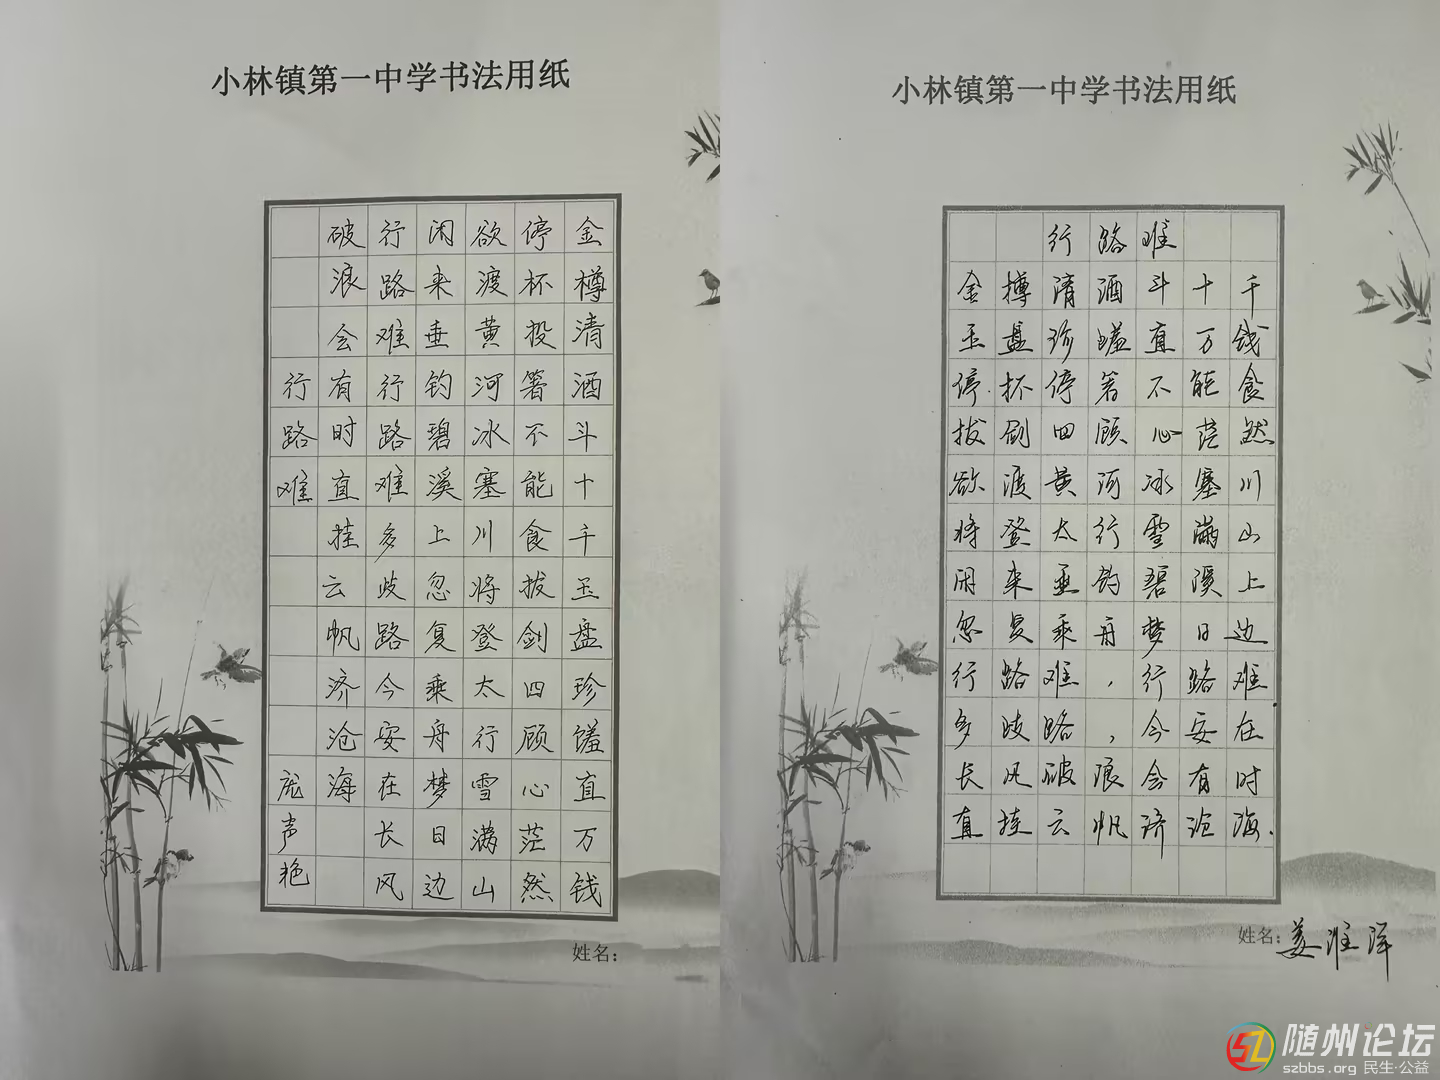 小林镇第一中学书法用纸
金樽清酒斗十千玉盘珍馐直万钱
停杯投箸不能食拔剑四顾心茫然
欲渡黄河冰塞川将登太行雪满山
闲来垂钓碧溪上忽复乘舟梦日边
行路难行路难多歧路今安在长风
破浪会有时直挂云帆济沧海
行路难
庞声艳
姓名：
小林镇第一中学书法用纸
行路难
金樽清酒斗十千
玉盘珍馐直万钱
停杯停箸不能食
拔剑四顾心茫然
欲渡黄河冰塞川
将登太行雪满山
闲来垂钓碧溪上
忽复乘舟梦日边
行路难，行路难
多歧路，今安在
长风破浪会有时
直挂云帆济沧海.
姓名：姜淮洋
随州论坛
szbbs.org 民生·公益